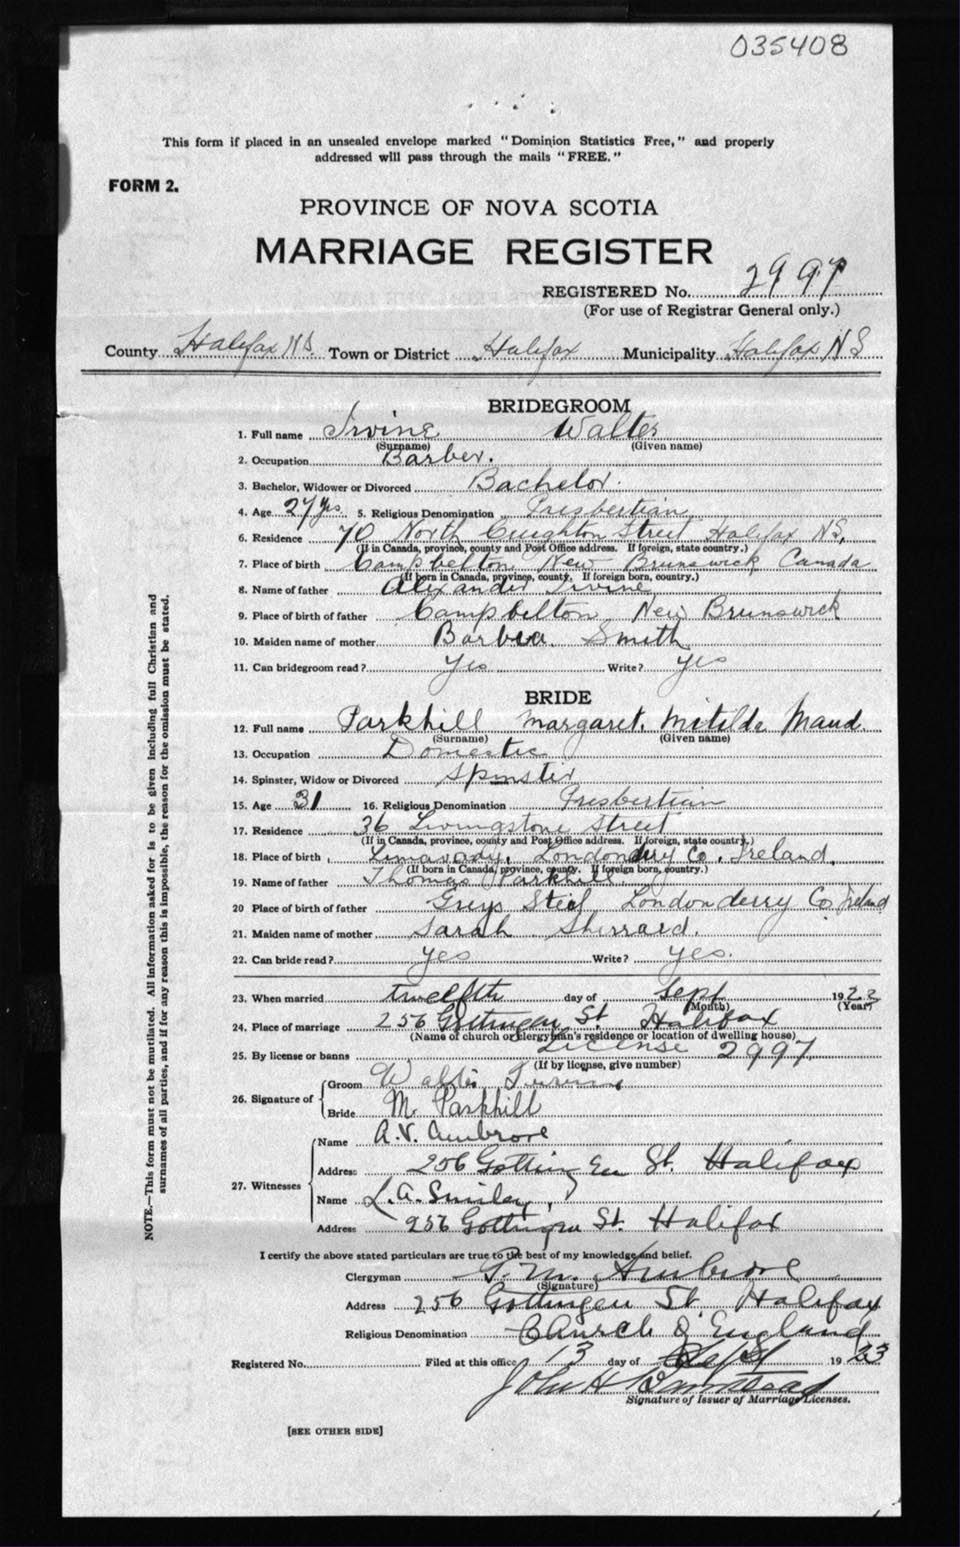 035408
This form if placed in an unsealed envelope marked "Dominion Statistics Free," and properly
addressed will pass through the mails "FREE."
FORM 2.
PROVINCE OF NOVA SCOTIA
MARRIAGE REGISTER
REGISTERED No. 2997
(For use of Registrar General only.)
County Halifax N.S. Town or District Halifax Municipality Halifax N S
BRIDEGROOM
1. Full name Irvine Walter
(Surname) (Given name)
2. Occupation Barber.
3. Bachelor, Widower or Divorced Bachelor.
4. Age 27 yrs 5. Religious Denomination Presbertian
6. Residence 70 North Creighton Street Halifax NS,
(If in Canada, province, county and Post Office address. If foreign, state country.)
7. Place of birth Campbelton New Brunswick Canada
(If born in Canada, province, county, If foreign born, country.)
8. Name of father Alexander Irvine
9. Place of birth of father Campbelton New Brunswick
10. Maiden name of mother Barbra Smith
11. Can bridegroom read? Yes Write? yes
BRIDE
12. Full name Parkhill Margaret. Matilda Maud.
(Surname) (Given name)
13. Occupation Domestic
14. Spinster, Widow or Divorced Spinster
15. Age 31 16. Religious Denomination Presbertian
17. Residence 36 Livingstone Street
(If in Canada, province, county and Post Office address. If foreign, state country.)
18. Place of birth Limavady, Londonderry Co. Ireland,
(If born in Canada, province, county. If foreign born, country.)
19. Name of father Thomas Parkhill.
20 Place of birth of father Greys Londonderry Co Ireland
21. Maiden name of mother Sarah Sherrard.
22. Can bride read? yes Write? yes.
23. When married twelfth day of Sept 1923
(Month) (Year)
24. Place of marriage 256 Gottingen St Halifax
(Name of church or clergyman's residence or location of dwelling house)
25. By license or banns License 2997
(If by license, give number)
26. Signature of
Groom Walter Irvine
Bride M. Parkhill
27. Witnesses
Name A.V. Ambrose
Address 256 Gottingen St. Halifax
Name L.A. Smiley
Address 256 Gottingen St. Halifax
I certify the above stated particulars are true to the best of my knowledge and belief.
Clergyman G. M. Ambrose
(Signature)
Address 256 Gottingen St Halifax
Religious Denomination Church of England
Registered No. Filed at this office 13 day of Sept 1923
John H
Signature of Issuer of Marriage Licenses.
[SEE OTHER SIDE]
NOTE.—This form must not be mutilated. All information asked for is to be given including full Christian and
surnames of all parties, and if for any reason this is impossible, the reason for the omission must be stated.